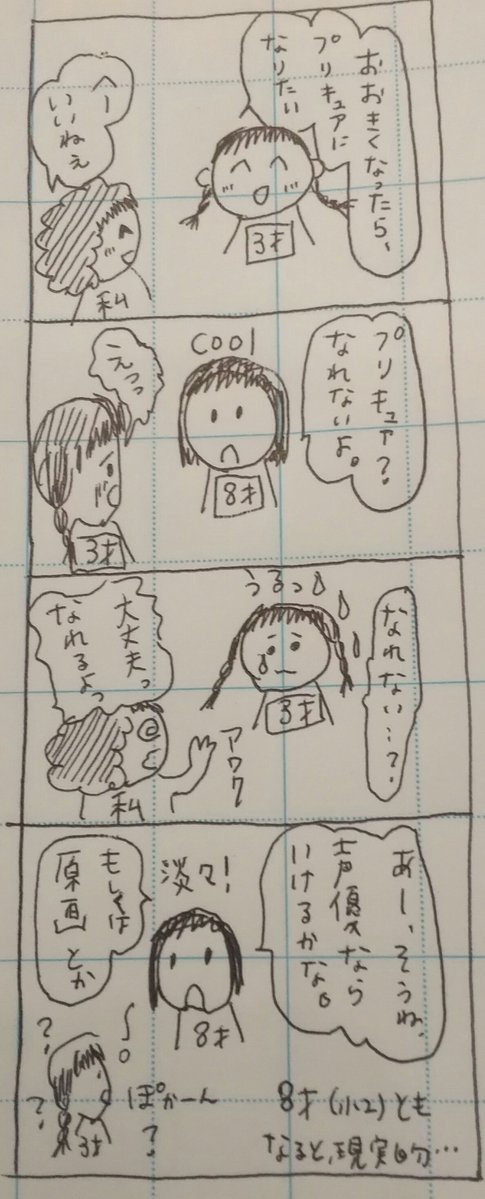 おおきくなったら、
プリキュアに
なりたい
3才
へー
いいねぇ
私
プリキュア?
なれないよ。
COOl
8才
えっっ
3才
なれない…?
うるっ
3才
大丈夫っ
なれるよっ
アワワ
私
あー、そうね、
声優ならいけるかな。
淡々!
8才
もしくは
原画とか
?
?
?
3才
ぽかーん
?
8才(小2)とも
なると、現実的…